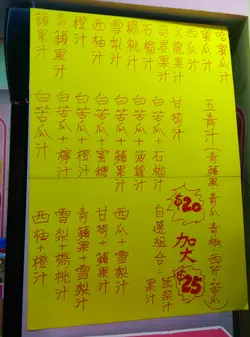 哈蜜瓜汁
西瓜汁
火龍果汁
奇異果汁
石榴汁
楊桃汁
雪梨汁
西柚汁
橙汁
青蘋果汁
五青汁（青蘋果 青瓜 青椒 西芹 苦瓜）
甘筍汁
白苦瓜+石榴汁
白苦瓜+菠蘿汁
白苦瓜+蘋果汁
白苦瓜+蜜糖
白苦瓜+橙汁
白苦瓜+檸汁
白苦瓜汁
$20
加大
$25
自選組合：蔬菜汁
果汁
西瓜+雪梨汁
甘筍+蘋果汁
青蘋果+雪梨汁
雪梨+楊桃汁
西柚+橙汁